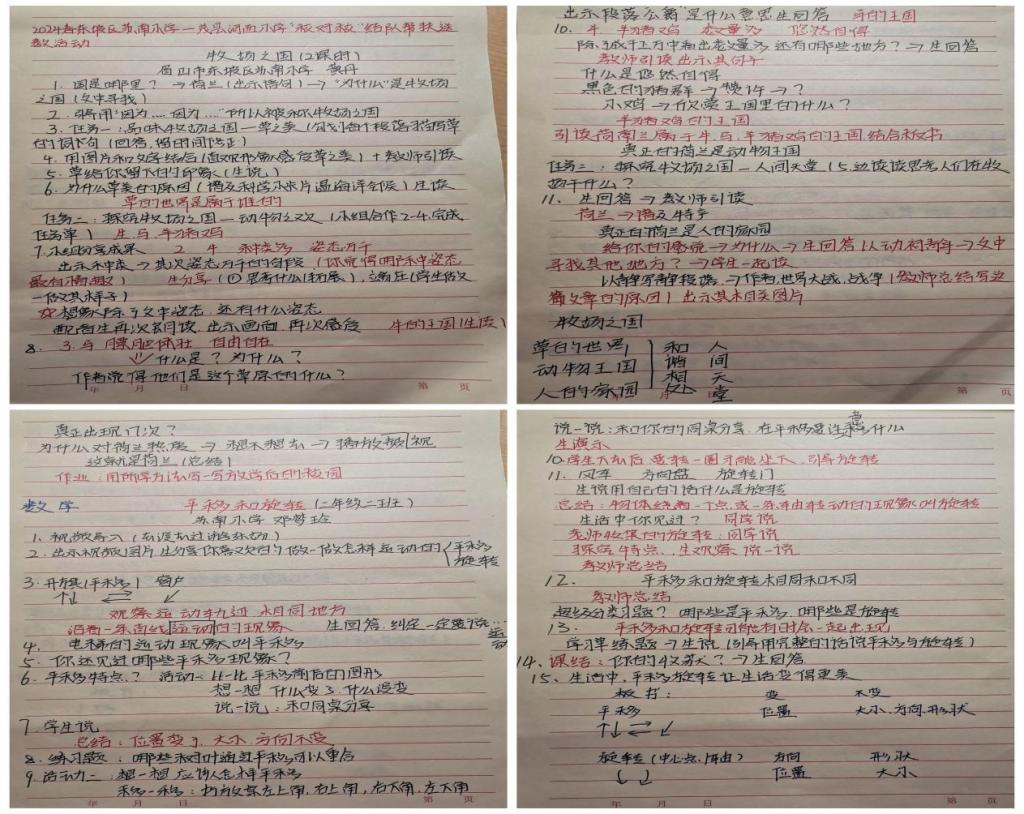 2024春东坡区苏南小学—茂县河西小学“校对校”结队帮扶送
教活动
牧场之国(2课时)
眉山市东坡区苏南小学 黄丹
1. 国是哪里? → 荷兰(出示诗句) → “为什么”是牧场
之国(文中寻找)
2. 引导用“因为……因为……”所以被称作牧场之国
3. 任务一:品味牧场之国—草之美(勾划每个段落描写草
的词句(回答,留时间修正)
4. 用图片和文字结合(直观形象感受草之美)+教师引读
5. 草给你留下的印象(生说)
6. 为什么草美的原因(播及科学小卡片温海洋气候)生读
草的世界是属于谁的
任务二:探究牧场之国—动物之又(小组合作2-4.完成
任务单) 牛.马.羊猪鸡
7. 小组分享成果 2. 牛 种类多 姿态万千
出示种类→其次姿态万千的句段(你觉得哪种姿态
最有情趣) 生分享(①思考什么(拓展),端庄(学生做
一做其样子)
②想象除了文中姿态.还有什么姿态
配音生再次去朗读.出示画面.再次感受 牛的王国(生读)
8. 3. 马 膘肥体壮 自由自在
什么是?为什么?
作者觉得他们是这个草原上的什么?
出示段落公爵”是什么意思生回答 马的王国
10. 4. 羊猪鸡 数量多 悠然自得
除了成千上万中看出数量多 还有哪些地方?→生回答
教师引读出示其句子
什么是悠然自得
黑色的猪群→赞许→?
小鸡→欣赏王国里的什么?
羊猪鸡的王国
引读荷兰属于牛.马.羊猪鸡的王国.结合板书
真正的荷兰是动物王国
任务三:探究牧场之国—人间天堂(5.边读读思考人们在牧
场干什么?
11. 生回答→教师引读
荷兰→谐及特乎
真正的荷兰是人的家园
给你的感觉→为什么→生回答 从动衬静→文中
寻找其他地方?→学生一起读
以静写静段落→作者.世界大战.战争(教师总结写这
篇文章的原因)出示其相关图片
牧场之国
草的世界 和 人
动物王国 谐 间
人的家园 相 天
处 堂
真正出现几次?
为什么对荷兰热度 → 想不想去 → 播放视
这就是荷兰(总结)
作业:用所学方法写一写放学后的校园
数学 平移和旋转(二年级二班)
苏南小学 邓梦玲
1. 视频导入(东坡过游乐场)
2. 出示视频/图片 生分享你喜欢的做一做怎样运动的 平移
旋转
3. 升旗(平移) 窗户
↑↓ ⇄ ↙
观察运动轨迹 相同地方
沿着一条直线运动的现象 生回答.纠定一定要说…
运动
4. 电梯的运动现象叫平移
5. 你还见过哪些平移现象?
6. 平移特点? 活动一比一比平移前后的图形
想一想 什么变了.什么没变
说一说:和同桌分享
7. 学生说
总结:位置变了.大小.方向不变
8. 练习题:哪些树叶通过平移可以重合
9. 活动二:想一想应该怎样平移
移一移:打放桌左上角,右上角,右下角,左下角
说一说:和你的同桌分享.在平移要注意什么
生演示
10. 学生下去后要转一圈才能坐下.引导旋转
11. 风车 方向盘 旋转门
生说用自己的话什么是旋转
总结:物体绕着一个点或一条轴转动的现象叫旋转
生活中你见过? 同学说
老师收集的旋转:同学说
探究特点.生观察说一说
教师总结
12. 平移和旋转相同和不同
教师总结
超级分类习题?哪些是平移.哪些是旋转
13. 平移和旋转可能有时会一起出现
学习单练题→生说(引导用完整的话说平移与旋转)
14. 课结:你的收获?→生回答
15. 生活中.平移.旋转让生活变得更美
板书: 变 不变
平移 位置 大小.方向.形状
↑↓ ⇄ ↙
旋转(中心点.自由) 方向 形状
位置 大小
年 月 日 第 页